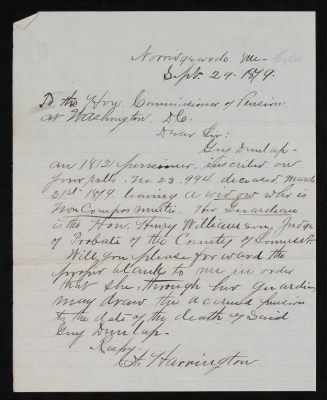 Norridgewock Me
Sept. 29. 1879.
To the Hon. Commissioner of Pensions
at Washington D.C.
Dear Sir:
Guy Dunlap-
an 1812 pensioner, inscribed on
your rolls. No. 23.994 deceased March
21st 1879 leaving a widow who is
Non Compos mentis. Her Guardian
is the Hon. Henry Williamson Judge
of Probate of the County of Somerset.
Will you please forward the
proper blank to me in order
that she, through her guardian
may draw the accrued pension
to the date of the death of said
Guy Dunlap-
Respy.
C. A. Harrington